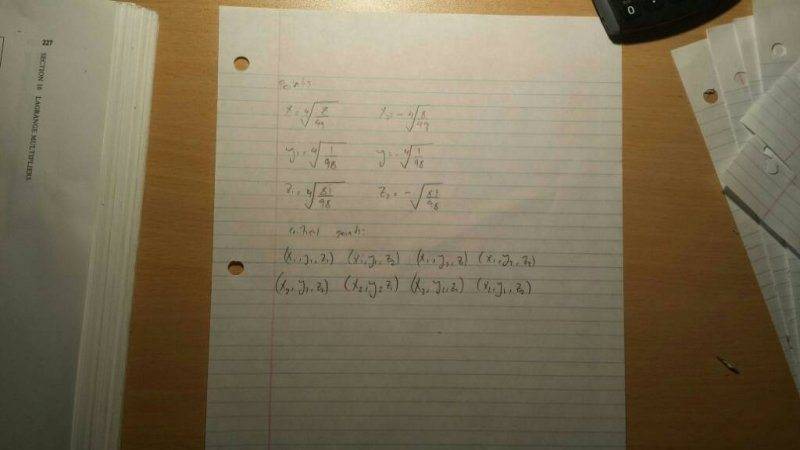 227 SECTION 16 LAGRANGE MULTIPLIERS
0
Points
x₁ = ∜(8/49) x₂ = -∜(8/49)
y₁ = ∜(1/98) y₂ = -∜(1/98)
z₁ = ∜(81/98) z₂ = -√(81/98)
critical points:
(x₁, y₁, z₁) (x₁, y₁, z₂) (x₁, y₂, z₁) (x₁, y₂, z₂)
(x₂, y₂, z₂) (x₂, y₂, z₁) (x₂, y₁, z₁) (x₂, y₁, z₂)